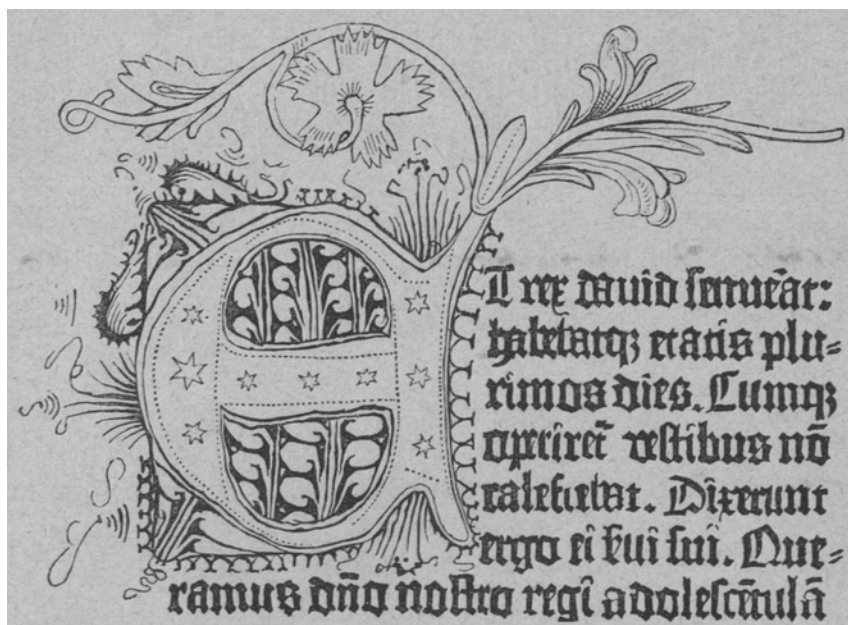 ET rex dauid senuẽat:
habebatqꝫ etatis plu⸗
rimos dies. Cumqꝫ
operiret̃ vestibus nõ
calefiebat. Dixerunt
ergo ei s̃ui sui. Que⸗
ramus dño nostro regi adolescẽtulã